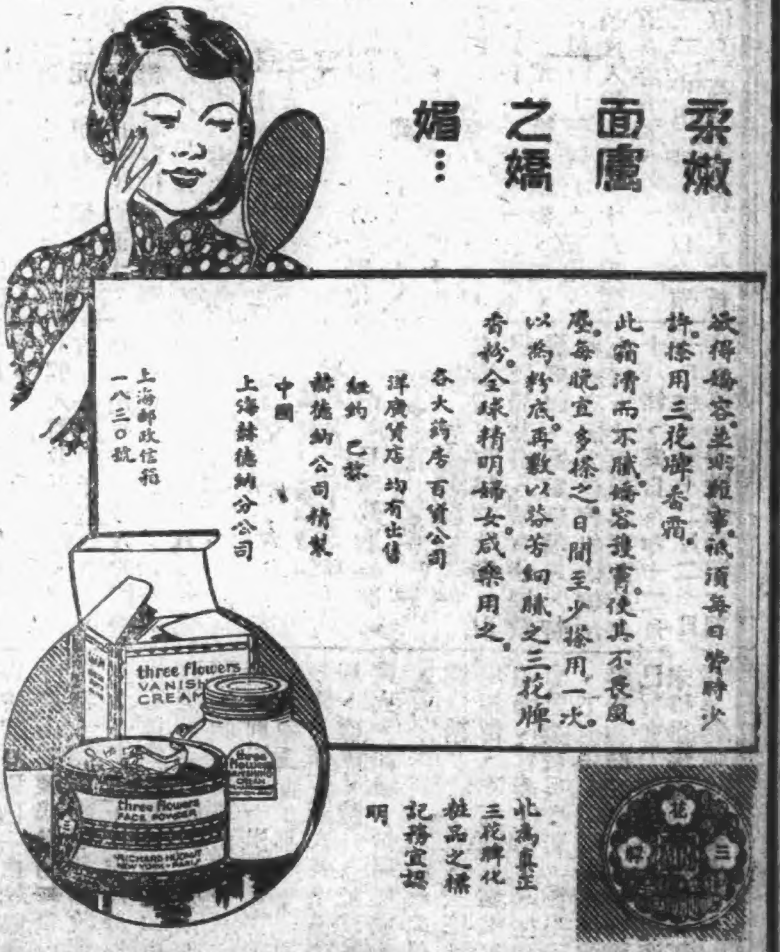 柔嫩
面龐
之嬌
媚…
欲得嬌容。並非難事。祇須每日費時少
許。搽用三花牌香霜。
此霜滑而不膩。嬌容護膚。使其不畏風
塵。每晚宜多搽之。日間至少搽用一次。
以為粉底。再敷以芬芳細膩之三花牌
香粉。全球精明婦女。咸樂用之。
各大药房 百貨公司
洋廣貨店 均有出售
紐約 巴黎
赫德納公司精製
中國
上海赫德納分公司
上海郵政信箱
一八三〇號
three flowers
VANISH
CREAM
three
flowers
VANISHING
CREAM
three flowers
FACE POWDER
RICHARD HUDNUT
NEW YORK - PARIS
三
此為真正
三花牌化
粧品之標
記務宜認
明
三
花
牌